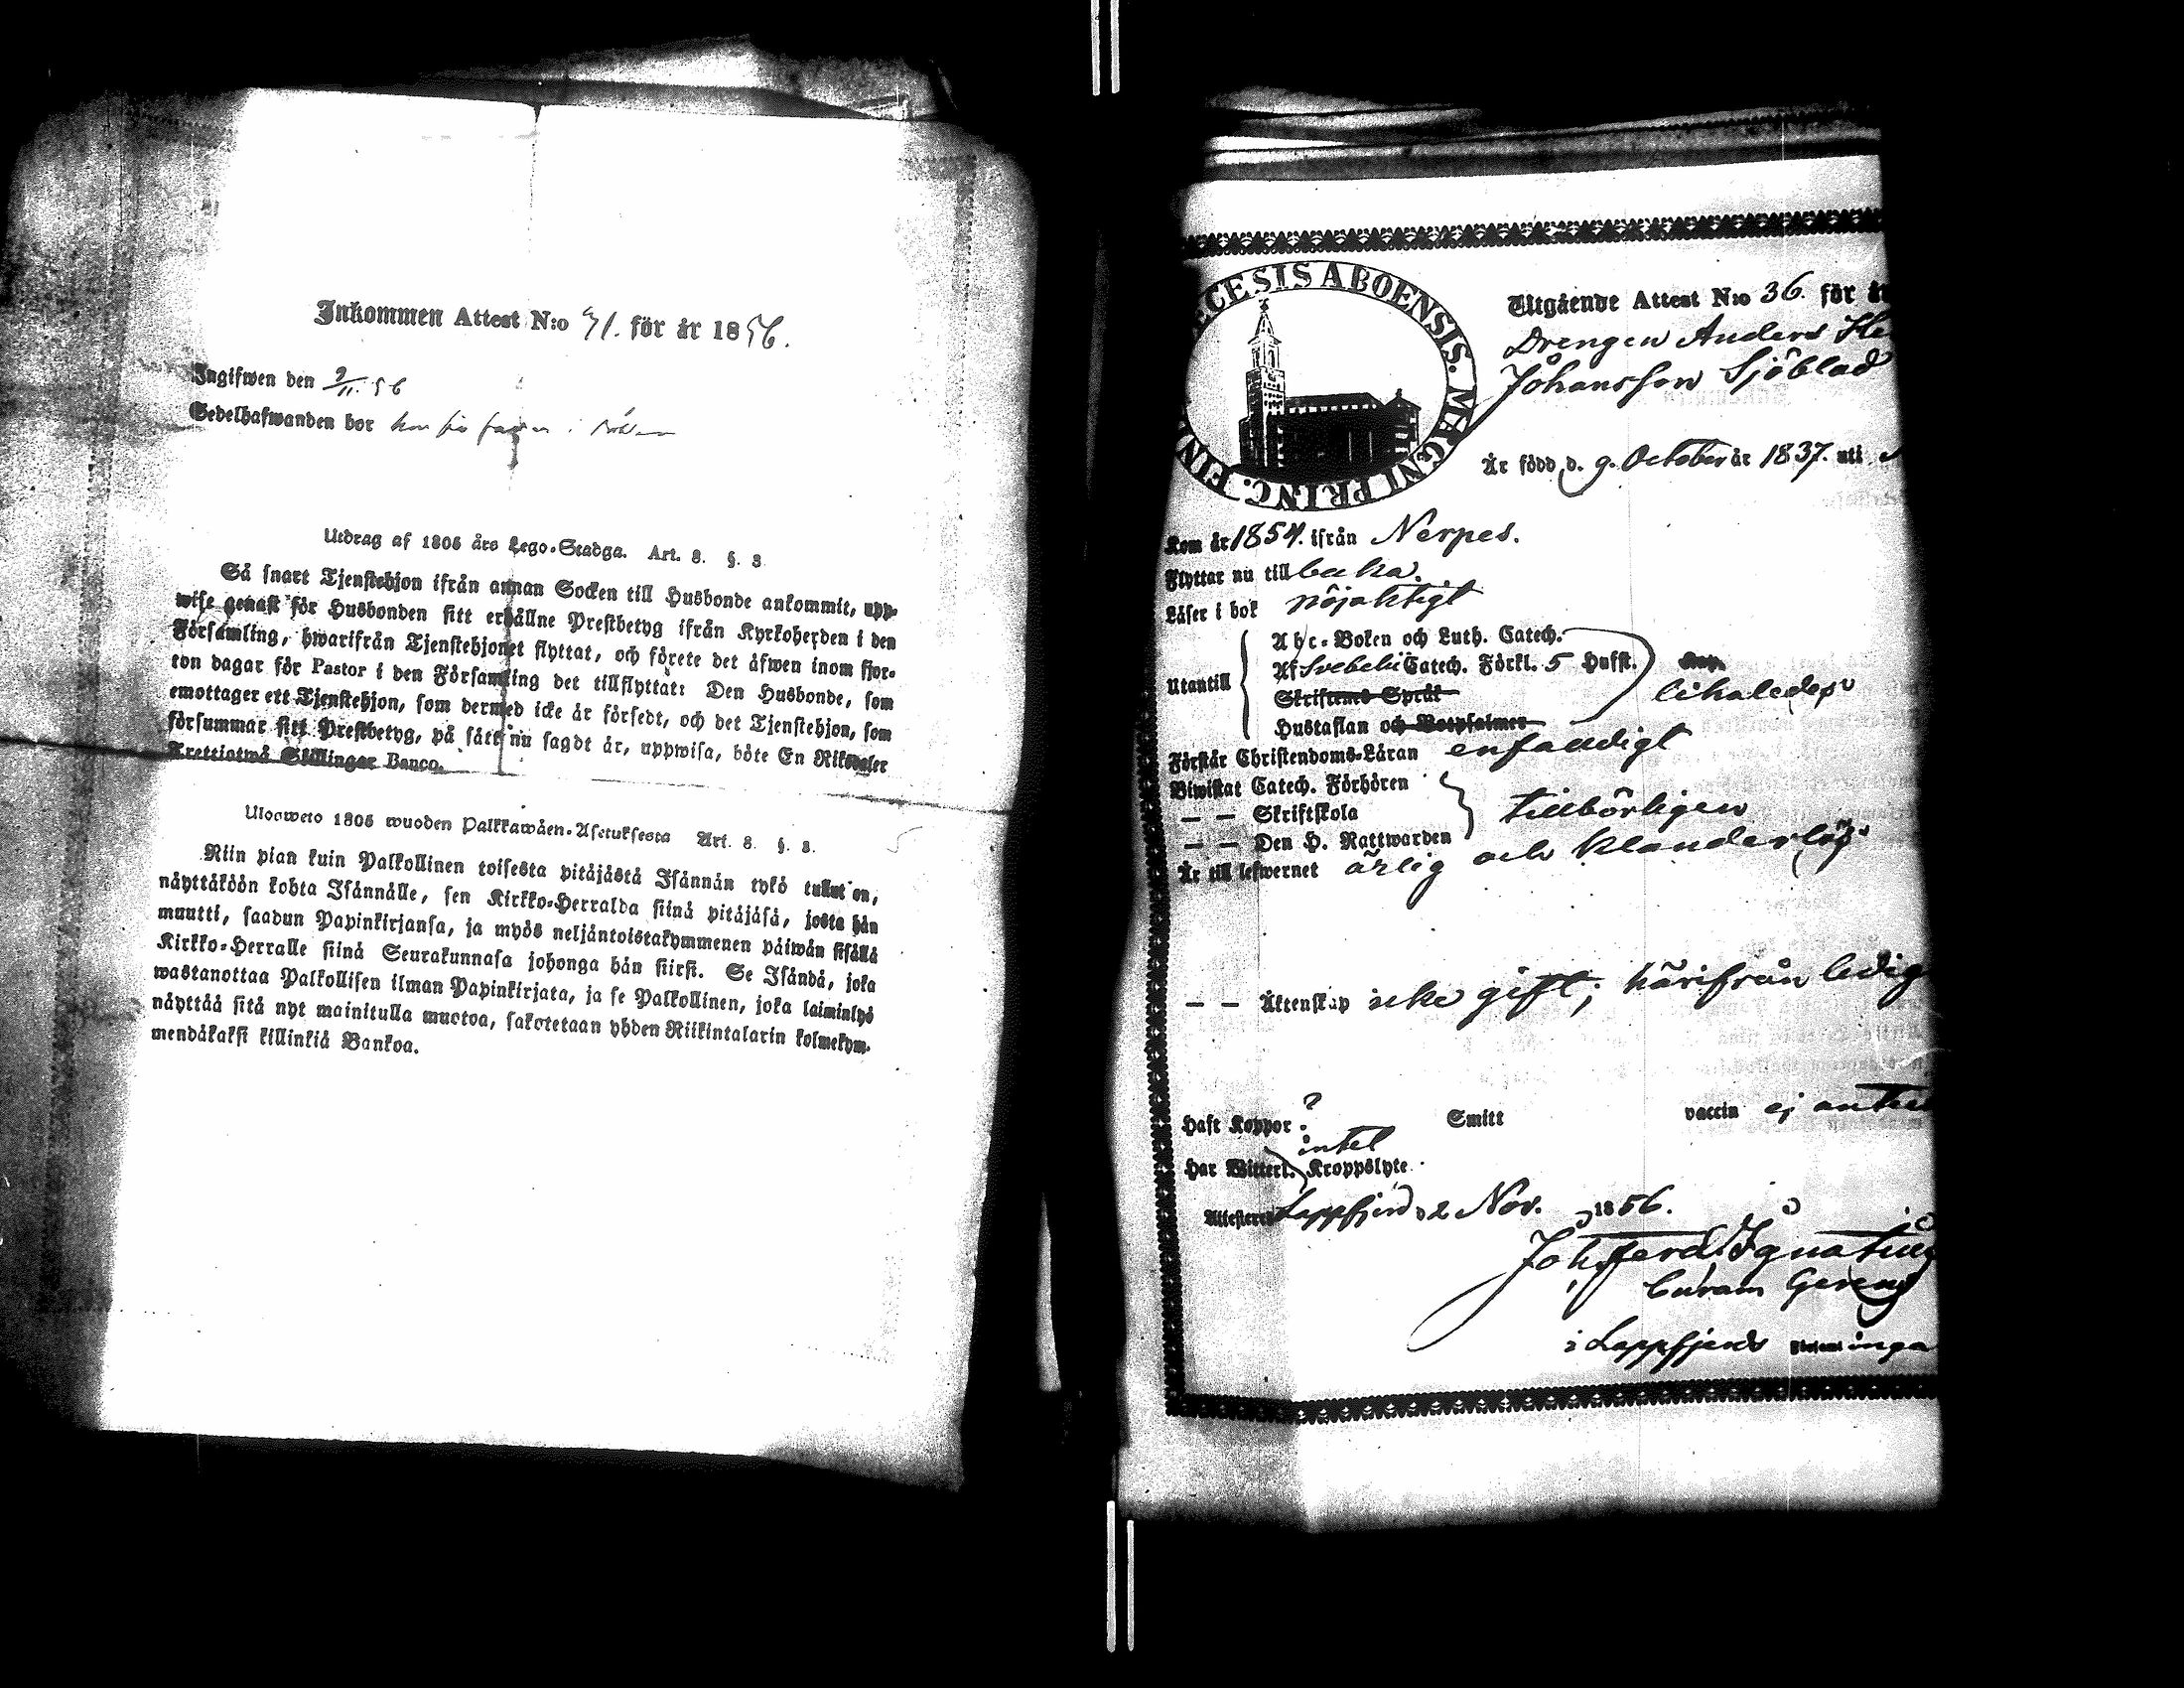 Inkommen Attest N:o 71. för år 1856.
Ingifwen den 9/11 56
Sedelhafwanden bor hos sin fader i
Utdrag af 1805 års Lego-Stadga. Art. 8. §. 3
Så snart Tjenstehjon ifrån annan Socken till Husbonde ankommit, upp-
wise genast för Husbonden sitt erhållne Prestbetyg ifrån Kyrkoherden i den
Församling, hwarifrån Tjenstehjonet flyttat, och förete det äfwen inom fjor-
ton dagar för Pastor i den Församling det tillflyttat: Den Husbonde, som
emottager ett Tjenstehjon, som dermed icke är försedt, och det Tjenstehjon, som
försummar sitt Prestbetyg, på sätt nu sagdt är, uppwisa, böte En Riksdaler
Trettiotwå Skillingar Banco.
Ulosweto 1805 wuoden Palkkawäen-Asetuksesta Art. 8. §. 3.
Niin pian kuin Palkollinen toisesta pitäjästä Isännän tykö tullut on,
näyttäköön kohta Isännälle, sen Kirkko-Herralda siinä pitäjäsä, josta hän
muutti, saadun Papinkirjansa, ja myös neljäntoistakymmenen päiwän sisällä
Kirkko-Herralle siinä Seurakunnasa johonga hän siirsi. Se Isändä, joka
wastanottaa Palkollisen ilman Papinkirjata, ja se Palkollinen, joka laiminlyö
näyttää sitä nyt mainitulla muotoa, sakotetaan yhden Riikintalarin kolmekym-
mendäkaksi killinkiä Bankoa.
ECESIS ABOENSIS. MAGNI PRINC. FIN
Utgående Attest N:o 36. för år
Drengen Anders He
Johansson Sjöblad
Är född d. 9. October år 1837. uti
Kom år 1854. ifrån Nerpes.
Flyttar nu till baka.
Läser i bok nöjaktigt
Utantill
Abc-Boken och Luth. Catech.
Af Svebelii Catech. Förkl. 5 Hufst.
likaledes
Skriftens Språk
Hustaflan och Botpsalmer
Förstår Christendoms-Läran enfaldigt
Biwistat Catech. Förhören
— — Skriftskola tillbörligen
— — Den H. Nattwarden
Är till lefwernet ärlig och klanderlös
— — Äktenskap icke gift; härifrån ledig
Haft Koppor ? Smitt vaccin ej antec
intet
Har Witterl. Kroppslyte.
Attesteras Lappfjerd d. 2 Nov. 1856.
Joh. Ferd. Ignatius
Curam Gerens
i Lappfjerds Församl inga